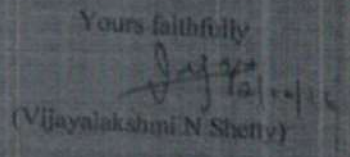 Yours faithfully
(Vijayalakshmi N Shetty)